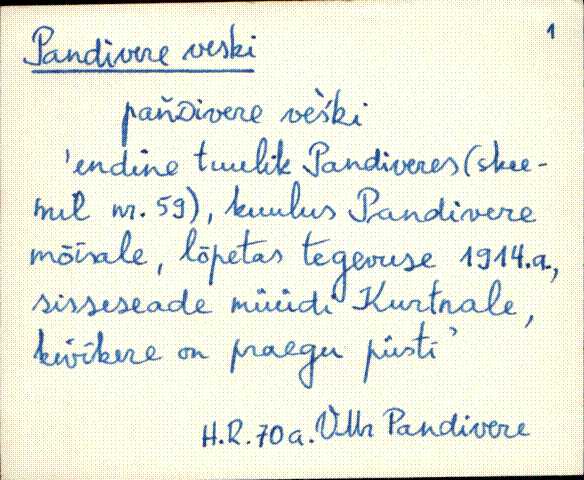 1
Pandivere veski
pańDivere vèśki
'endine tuulik Pandiveres (skee-
mil nr. 59), kuulus Pandivere
mõisale, lõpetas tegevuse 1914.a.,
sisseseade müüdi Kurtnale,
kivikere on praegu püsti'
H.R. 70 a. VMr Pandivere